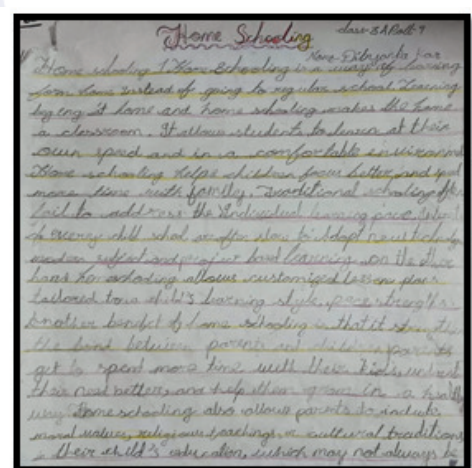 Home Schooling class-8A Roll-9
Name-Dibyanta Kar
Home schooling / Home Schooling is a way of learning
form home instead of going to regular school. Learning
begins at home and home schooling makes the home
a classroom. It allows students to learn at their
own speed and in a comfortable
Home schooling helps children focus better, and spend
more time with family. Traditional schooling often
fail to address the Individual learning pace,
of every child school are often slow to Adopt new
modern subject and project based learning. on the other
hand home schooling allows customized lesson plans
tailored to a child's learning style, pace strengths.
Another benefit of home schooling is that it
the bond between parents and children. parents
get to spent more time with their kids,
their need better, and help them grow in a healthy
way. Home schooling also allows parents to include
moral values, religious teachings, or cultural traditions
in their child's education, which may not always be